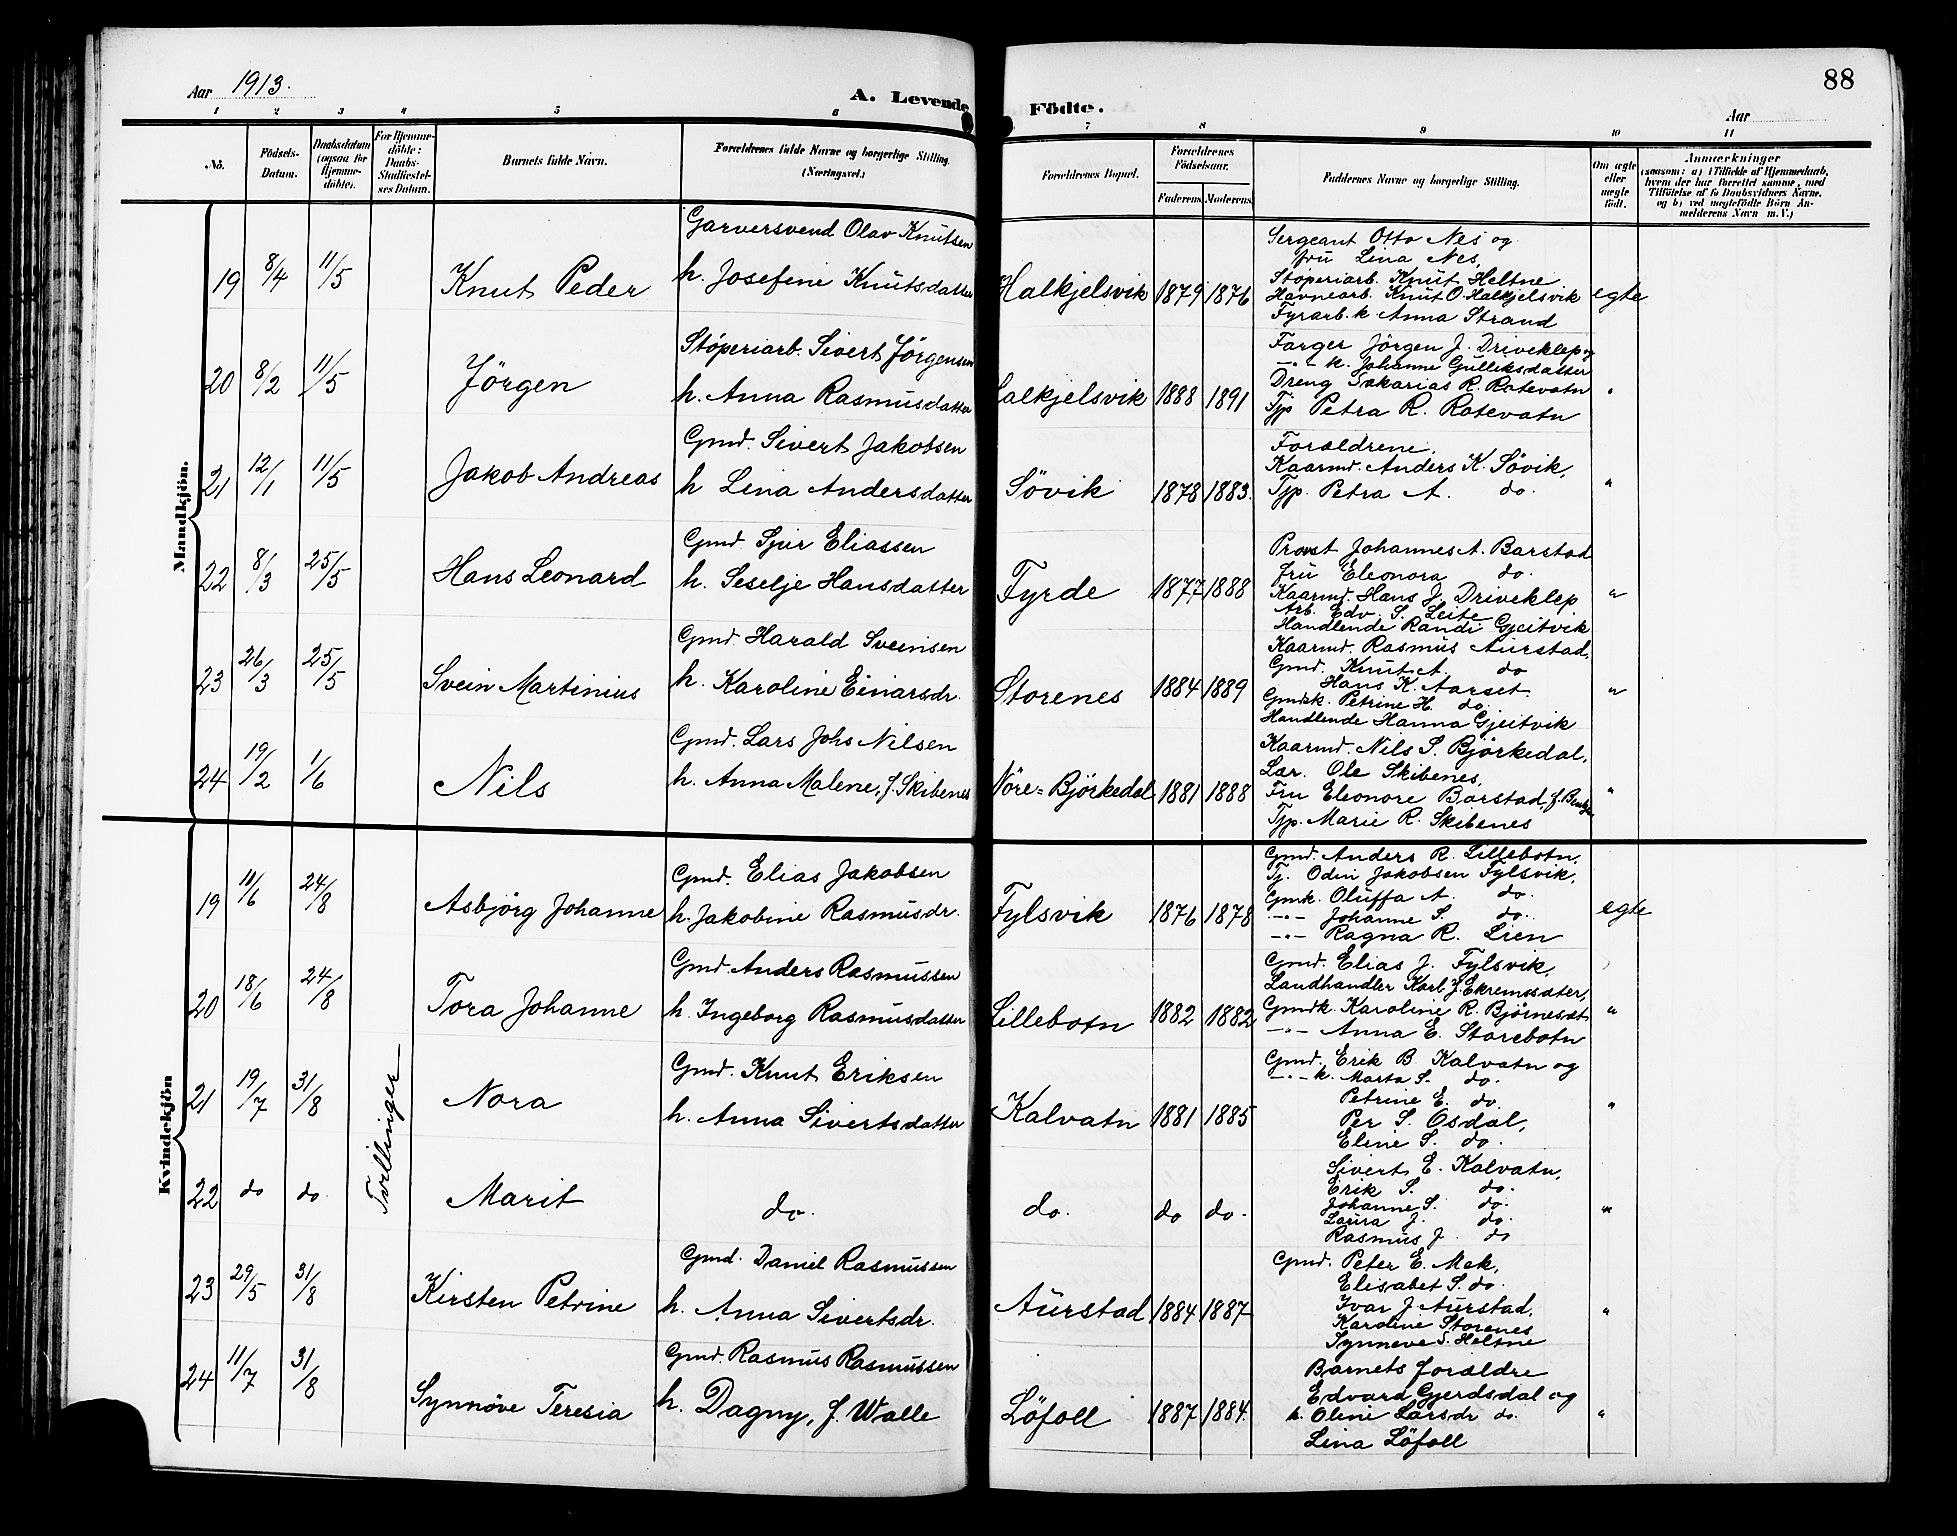 Aar 1913.
A. Levende Födte.
88
Aar
1 2 3 4 5 6 7 8 9 10 11
No.
Födsels-Datum.
Daabsdatum (ogsaa for Hjemmedöbte).
For Hjemmedöbte: Daabs-Stadfæstelses Datum.
Barnets fulde Navn.
Forældrenes fulde Navne og borgerlige Stilling. (Næringsvei.)
Forældrenes Bopæl.
Forældrenes Födselsaar.
Faderens. Moderens.
Faddernes Navne og borgerlige Stilling.
Om ægte eller uægte født.
Anmærkninger
(saasom: a) i Tilfælde af Hjemmedaab, hvem der har forrettet samme, med Tilföielse af to Daabsvidners Navne, og b) ved uægtefödte Börn Anmelderens Navn m. V.)
Mandkjön.
19 8/4 11/5 Knut Peder
Garversvend Olav Knutsen
h. Josefine Knutsdatter
Halkjelsvik 1879 1876
Sergeant Otto Nes og
fru Lina Nes,
Støperiarb. Knut Heltne
Havnearb. Knut O. Halkjelsvik
Fyrarb. k Anna Strand
egte
20 8/2 11/5 Jörgen
Støperiarb. Sivert Jörgensen
h. Anna Rasmusdatter
Halkjelsvik 1888 1891
Farger Jörgen J. Driveklep og
-"- k. Johanne Gulliksdatter
Dreng Sakarias R. Rotevatn
Tjp Petra R. Rotevatn
"
21 12/1 11/5 Jakob Andreas
Gmd. Sivert Jakobsen
h Lina Andersdatter
Sövik 1878 1883.
Forældrene,
Kaarmd. Anders K. Sövik,
Tjp. Petra A. do.
"
22 8/3 25/5 Hans Leonard
Gmd. Sjur Eliassen
h. Seselje Hansdatter
Fyrde 1877 1888
Provst Johannes A. Barstad
fru Eleonora do.
Kaarmd. Hans J. Driveklep
Arb. Edv. S. Leite
Handlende Randi Gjeitvik
"
23 26/3 25/5 Svein Martinius
Gmd. Harald Sveinsen
h. Karoline Einarsdr.
Storenes 1884 1889
Kaarmd. Rasmus Aurstad,
Gmd. Knut A. do
Hans K. Aarset
Gmdsk. Petrine H. do.
Handlende Hanna Gjeitvik
"
24 19/2 1/6 Nils
Gmd. Lars Johs Nilsen
h. Anna Malene, f. Skibenes
Nöre=Björkedal 1881 1888
Kaarmd. Nils S. Björkedal,
Lær. Ole Skibenes,
Fru Eleonore Barstad,
Tjp. Marie R. Skibenes
"
Kvindekjön
19 11/6 24/8 Asbjörg Johanne
Gmd. Elias Jakobsen
h. Jakobine Rasmusdr.
Fylsvik 1876 1878
Gmd. Anders R. Lillebotn,
Tj. Odin Jakobsen Fylsvik,
Gmk. Oluffa A. do
-"- Johanne S. do.
-"- Ragna R. Lien
egte
20 18/6 24/8 Tora Johanne
Gmd. Anders Rasmussen
h. Ingeborg Rasmusdatter
Lillebotn 1882 1882
Gmd. Elias J. Fylsvik,
Landhandler Karl J. Ekremssæter,
Gmdk. Karoline R. Bjørneset
-"- Anna E. Storebotn
"
21 19/7 31/8 Tvillinger Nora
Gmd. Knut Eriksen
h. Anna Sivertsdatter
Kalvatn 1881 1885
Gmd. Erik B. Kalvatn og
-"- k. Marta S. do.
Petrine E. do
Per S. Osdal,
Eline S. do.
"
22 do do. Marit
do.
do. do do.
Sivert E. Kalvatn,
Erik S. do.
Johanne S. do.
Laura J. do.
Rasmus J. do
"
23 29/5 31/8 Kirsten Petrine
Gmd. Daniel Rasmussen
h. Anna Sivertsdr.
Aurstad 1884 1887
Gmd. Peter E. Mek,
Elisabet S. do.
Ivar J. Aurstad,
Karoline Storenes
Synneve S. Heltne
"
24 11/7 31/8 Synnöve Teresia
Gmd. Rasmus Rasmussen
h. Dagny, f. Walle
Löfoll 1887 1884.
Barnets forældre
Edvard Gjerdsdal og
k. Oline Larsdr do.
Lina Löfoll
"